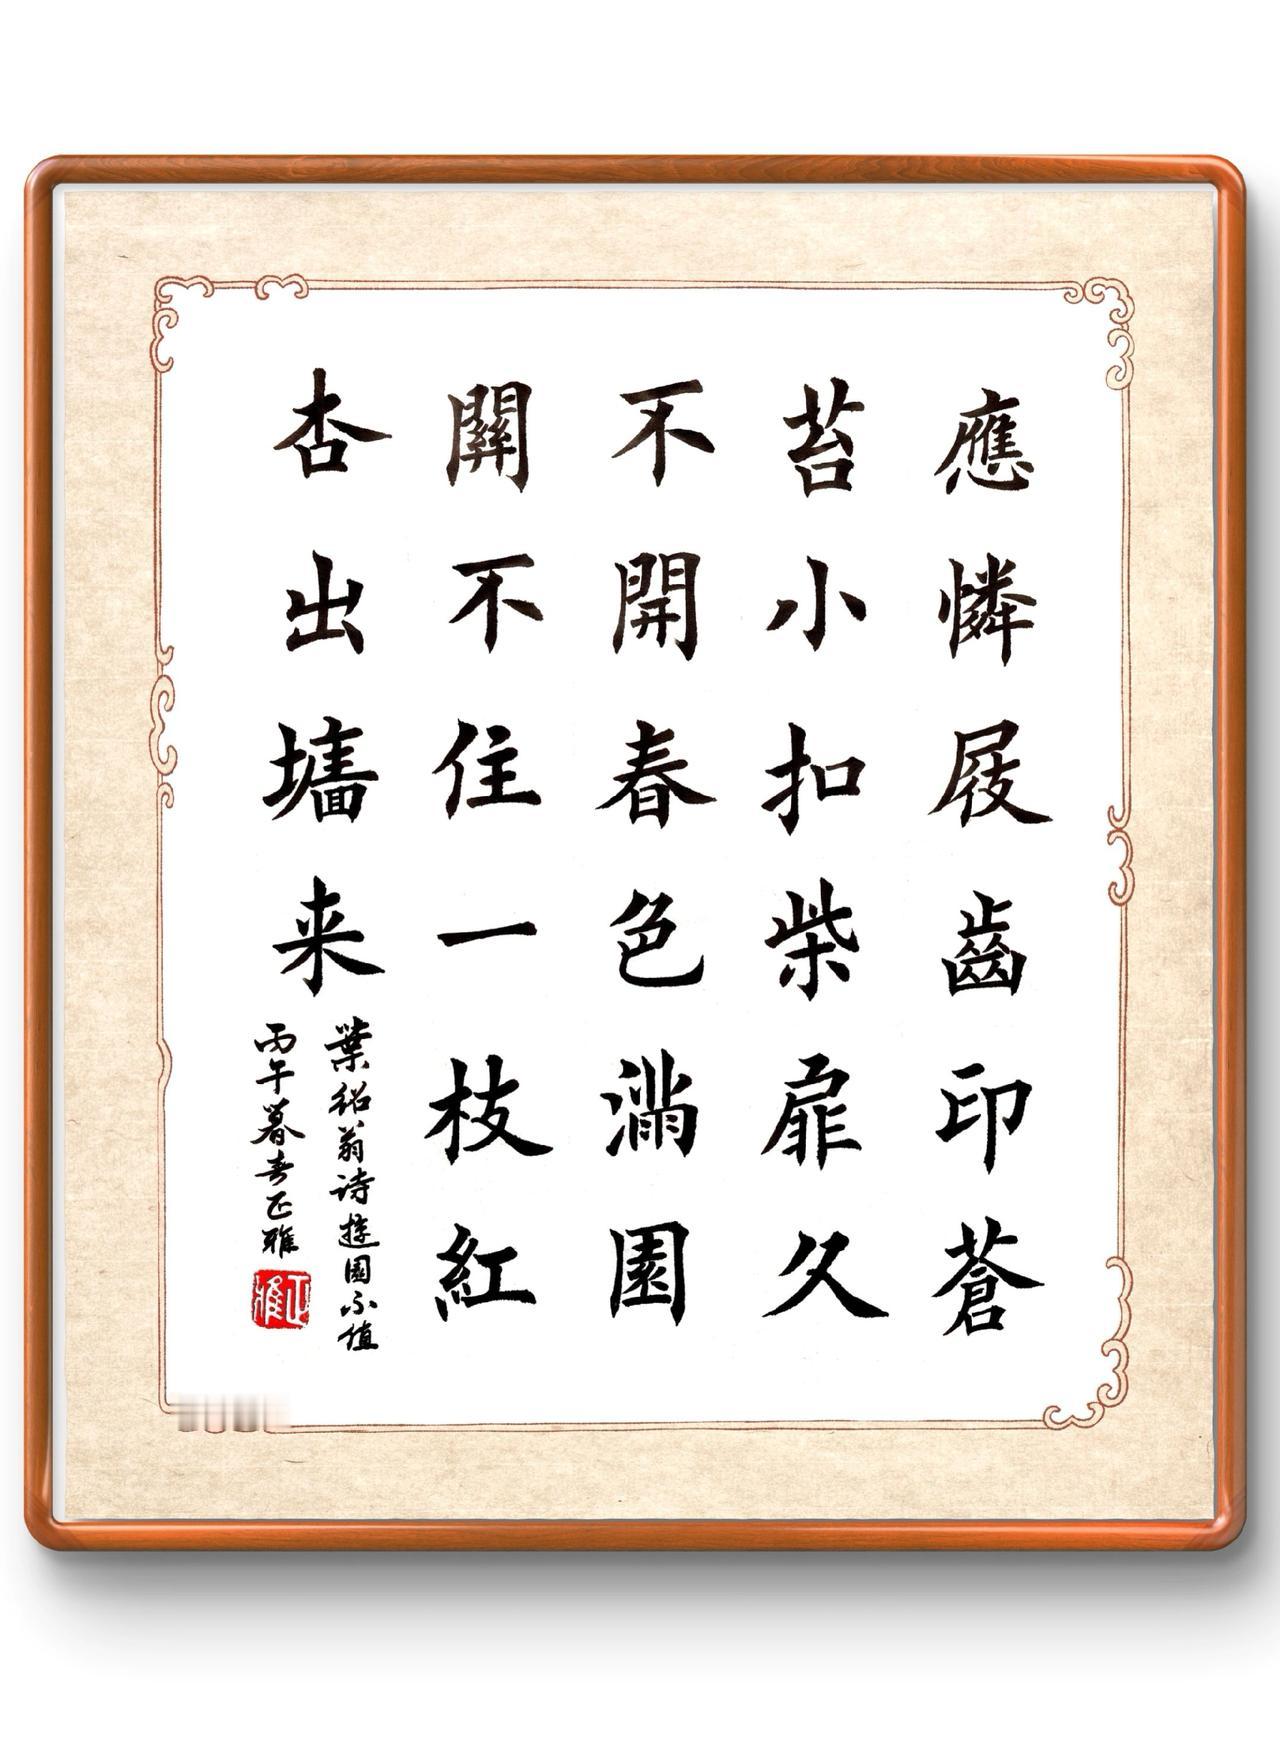 應憐屐齒印蒼
苔小扣柴扉久
不開春色滿園
關不住一枝紅
杏出墻来
葉紹翁詩遊園不值
丙午暮春正雅
正雅